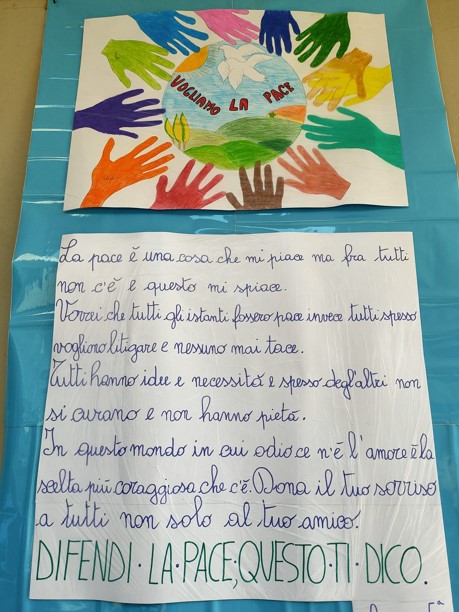 VOGLIAMO LA PACE
La pace è una cosa che mi piace ma fra tutti
non c'è e questo mi spiace.
Vorrei che tutti gli istanti fossero pace invece tutti spesso
vogliono litigare e nessuno mai tace.
Tutti hanno idee e necessità e spesso degl'altri non
si curano e non hanno pietà.
In questo mondo in cui odio ce n'è l'amore è la
scelta più coraggiosa che c'è. Dona il tuo sorriso
a tutti non solo al tuo amico.
DIFENDI·LA·PACE;QUESTO·TI·DICO.
5ª